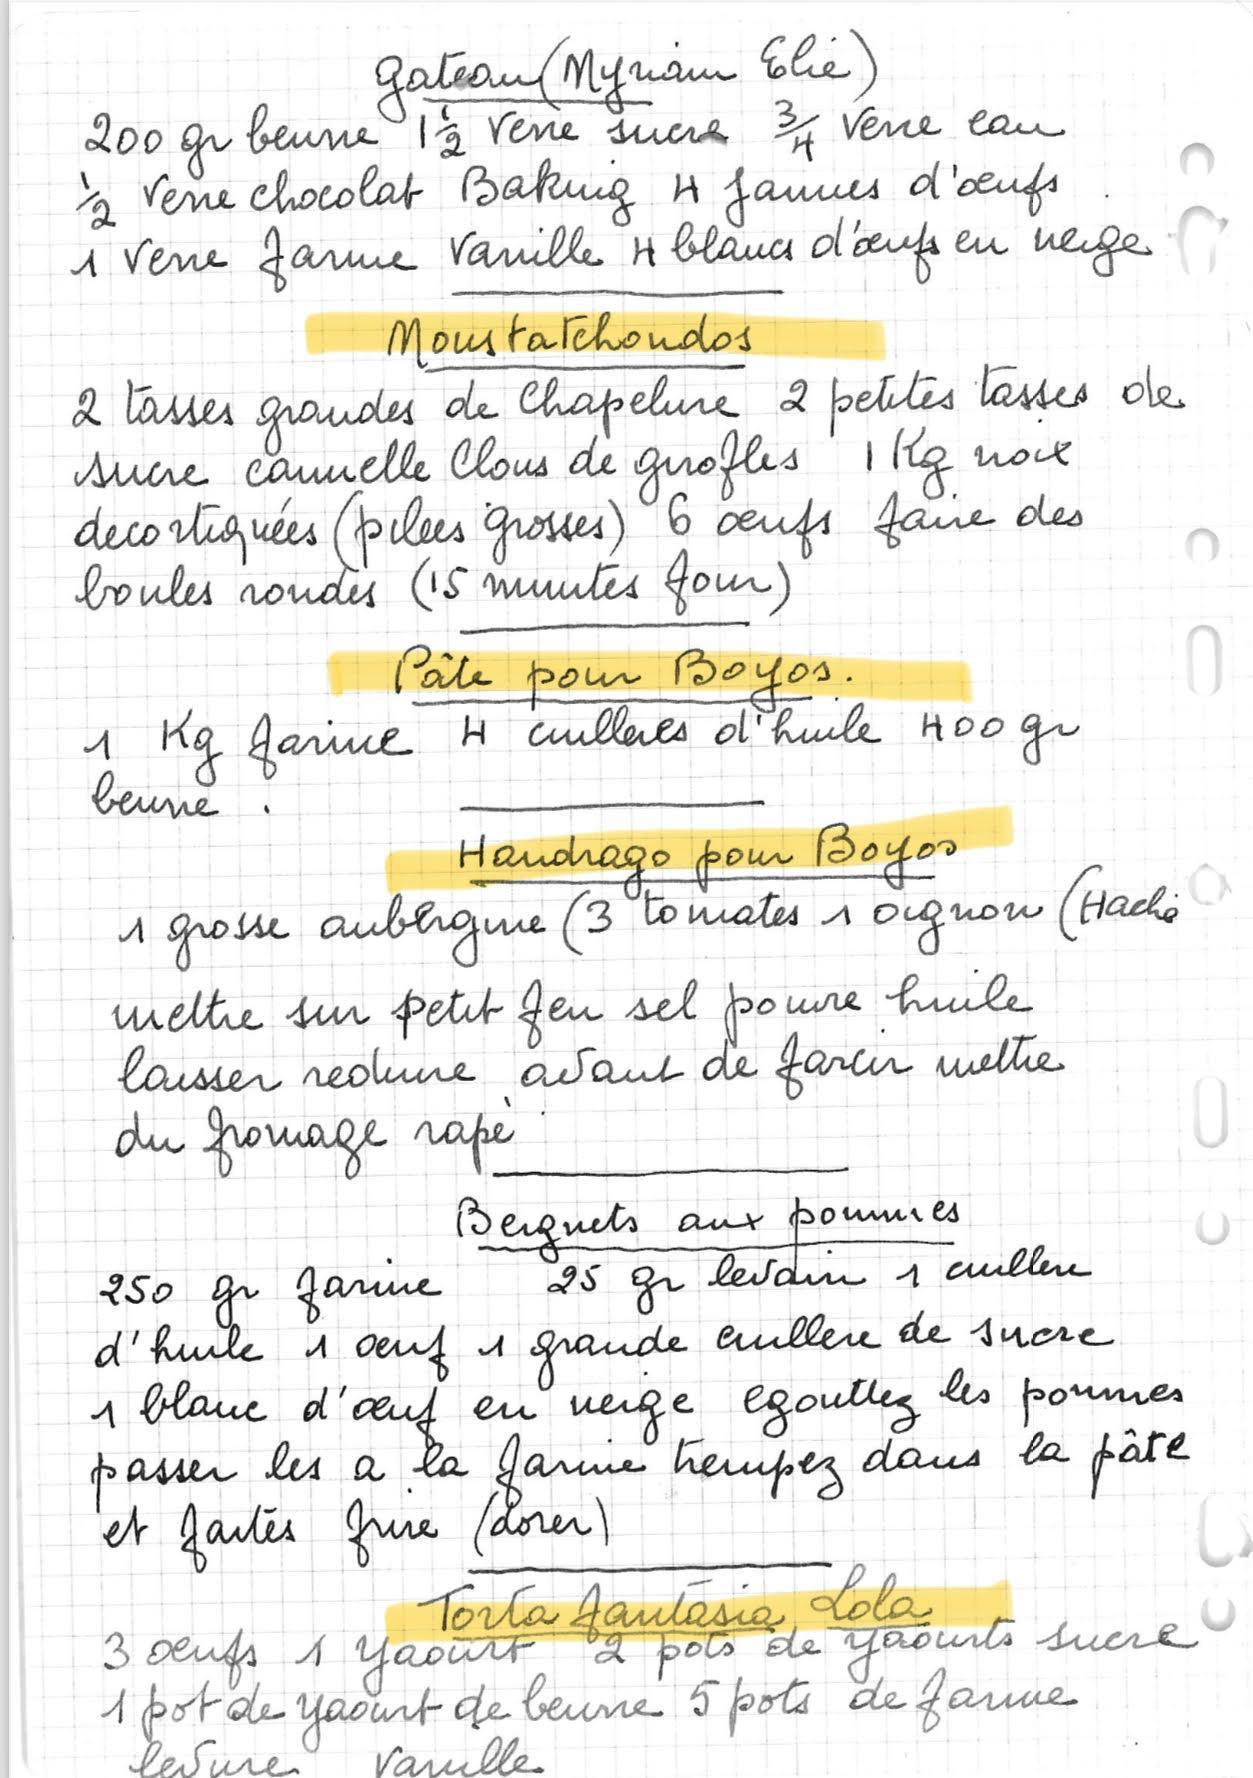 Gateau (Myriam Elie)
200 gr beurre 1 1/2 verre sucre 3/4 verre eau
1/2 verre chocolat Baking 4 jaunes d'œufs
1 verre farine vanille 4 blancs d'œufs en neige
Moustatchoudos
2 tasses grandes de Chapelure 2 petites tasses de
sucre cannelle Clous de girofles 1 Kg noix
decortiquées (pilees grosses) 6 œufs faire des
boules rondes (15 minutes four)
Pâte pour Boyos.
1 Kg farine 4 cuilleres d'huile 400 gr
beurre.
Handrago pour Boyos
1 grosse aubergine (3 tomates 1 oignon (Haché
mettre sur petit feu sel poivre huile
laisser reduire avant de farcir mettre
du fromage rapé
Beignets aux pommes
250 gr farine 25 gr levain 1 cuillere
d'huile 1 œuf 1 grande cuillere de sucre
1 blanc d'œuf en neige egouttez les pommes
passer les a la farine trempez dans la pâte
et faites frire (dorer)
Torta fantasia Lola
3 œufs 1 yaourt 2 pots de yaourts sucre
1 pot de yaourt de beurre 5 pots de farine
levure vanille